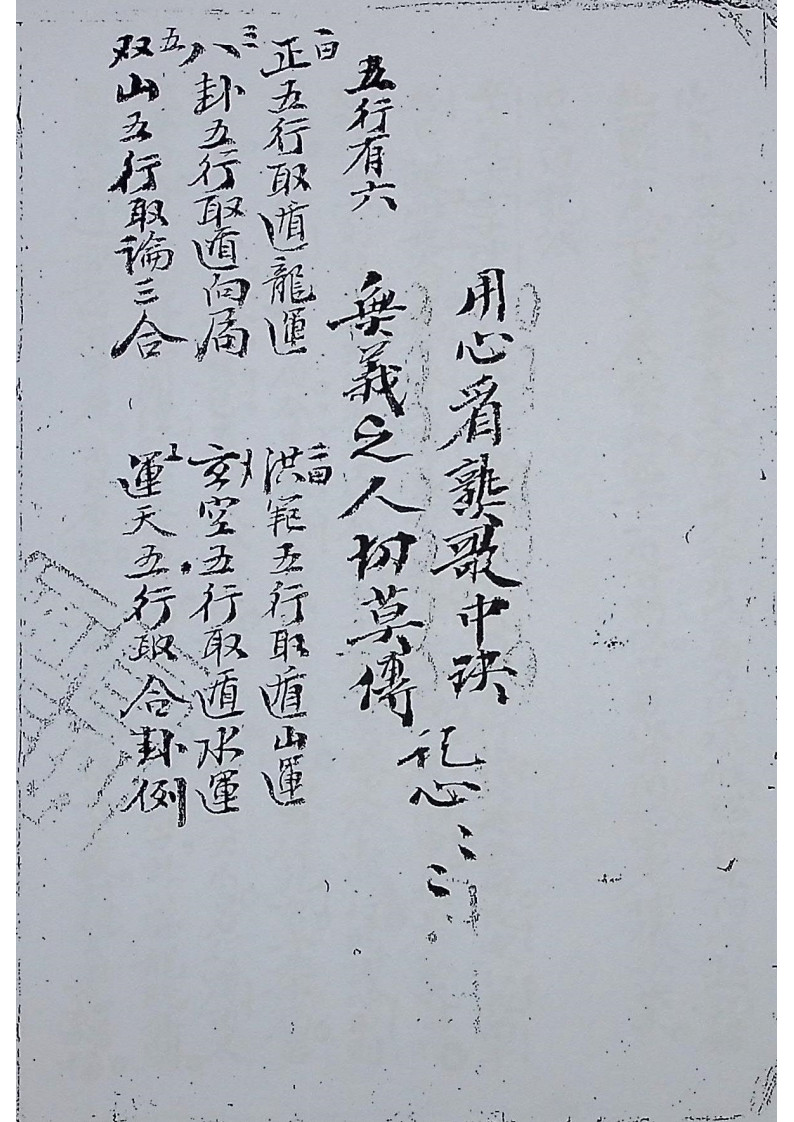 用心看龔歌中訣
無義之人切莫傳
秘心〻〻
五行有六
一曰正五行取遁龍運
二曰洪範五行取遁山運
三八卦五行取遁向属
玄空五行取遁水運
五双山五行取論三合
運天五行取合卦例